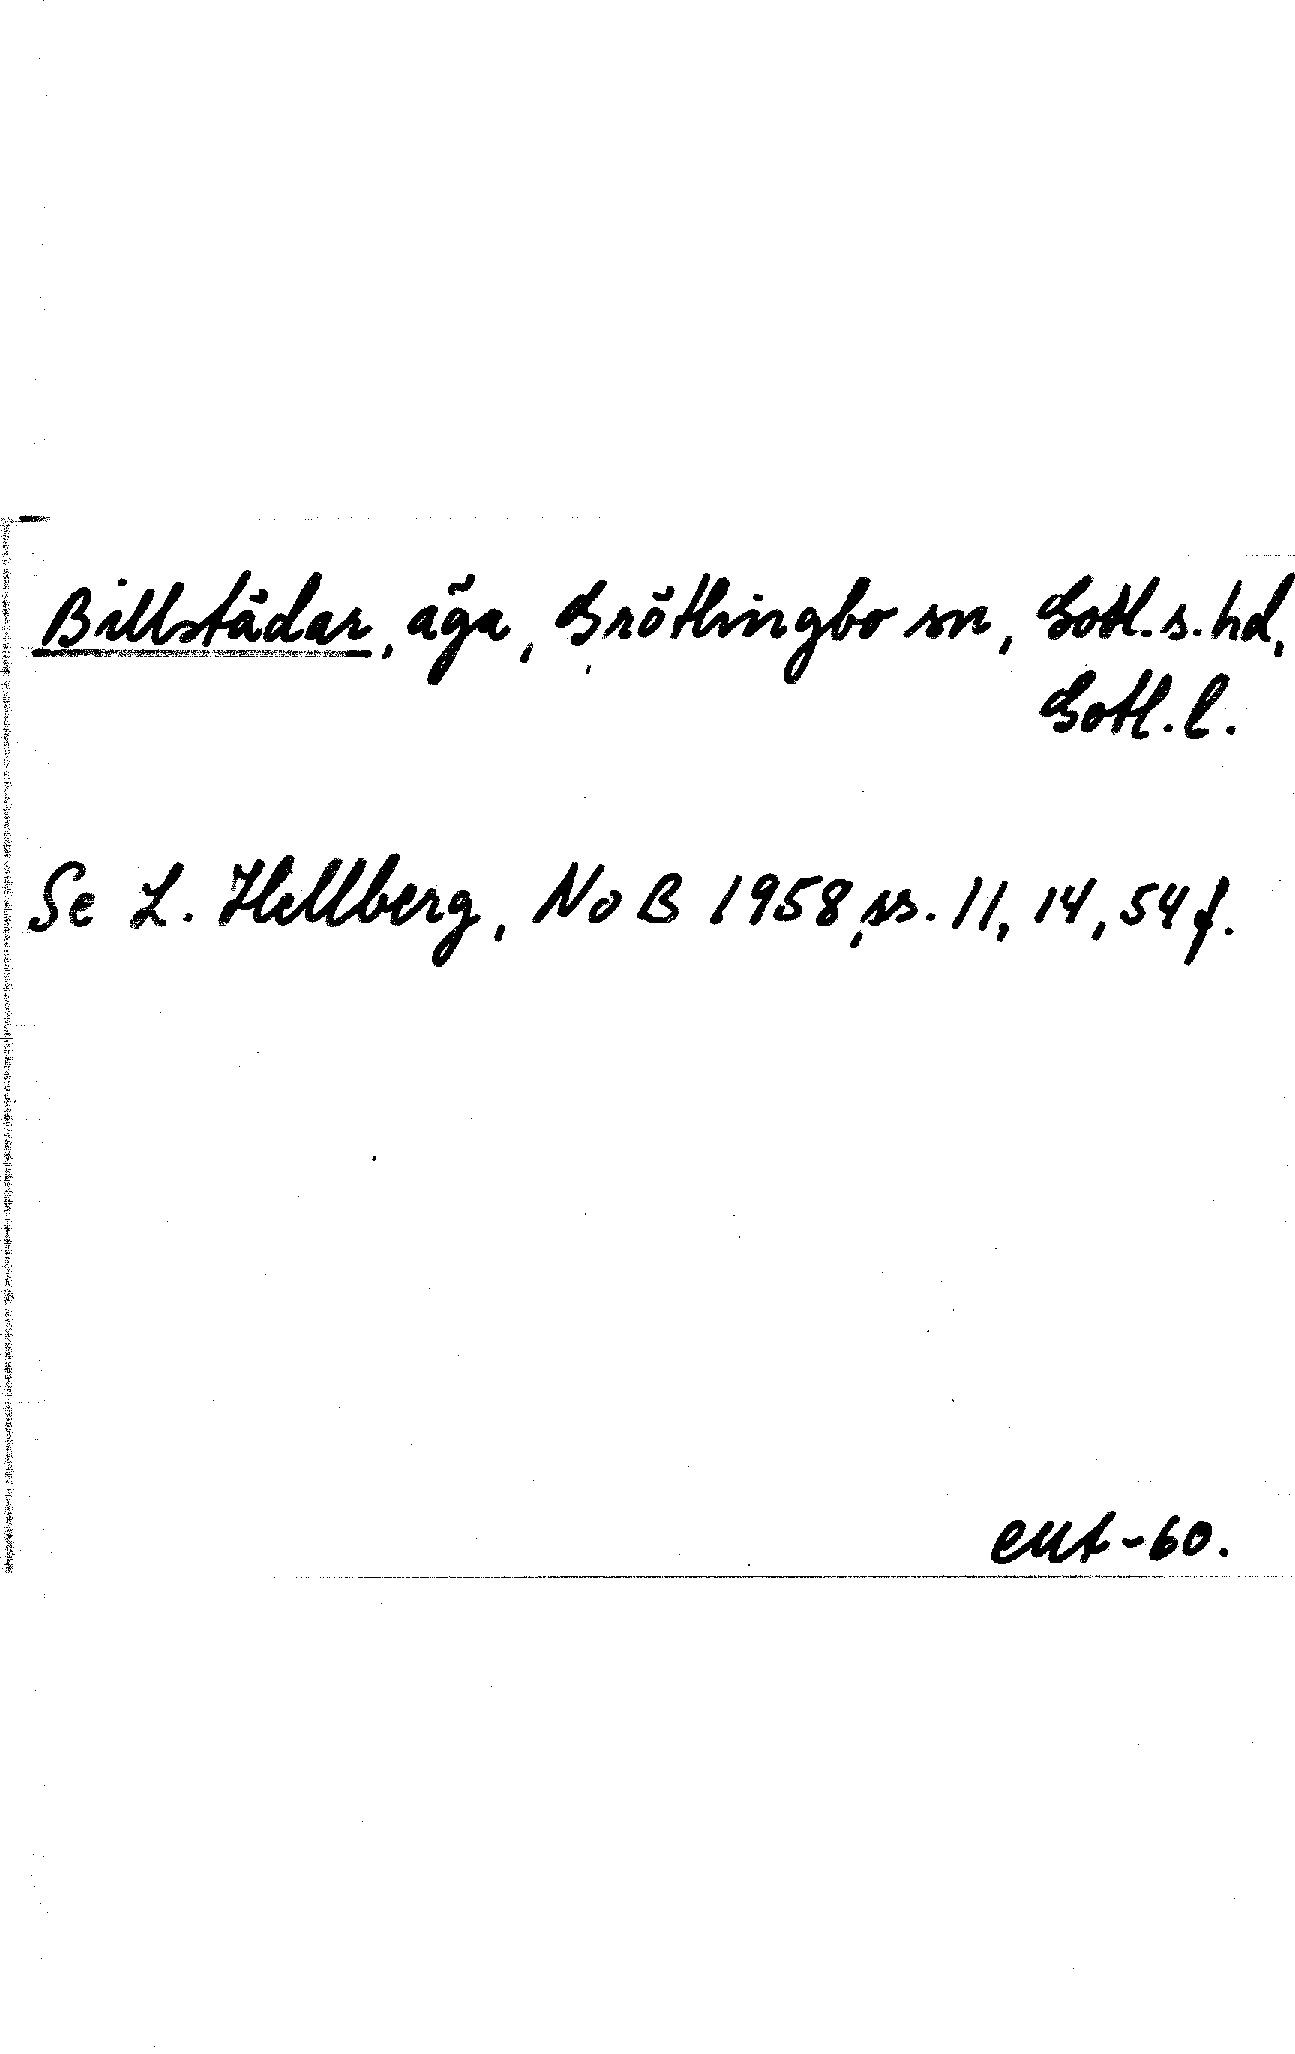 Billstädar, äga, Grötlingbo sn, Gotl. s. hd,
Gotl. l.
Se L. Hellberg, NoB 1958, ss. 11, 14, 54 f.
-60.